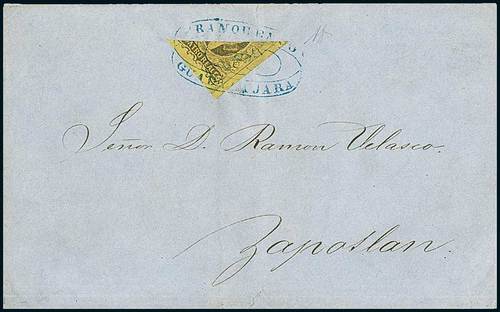 FRANQUEADO
GUADALAJARA
Señor D. Ramon Velasco.
Zapotlan.